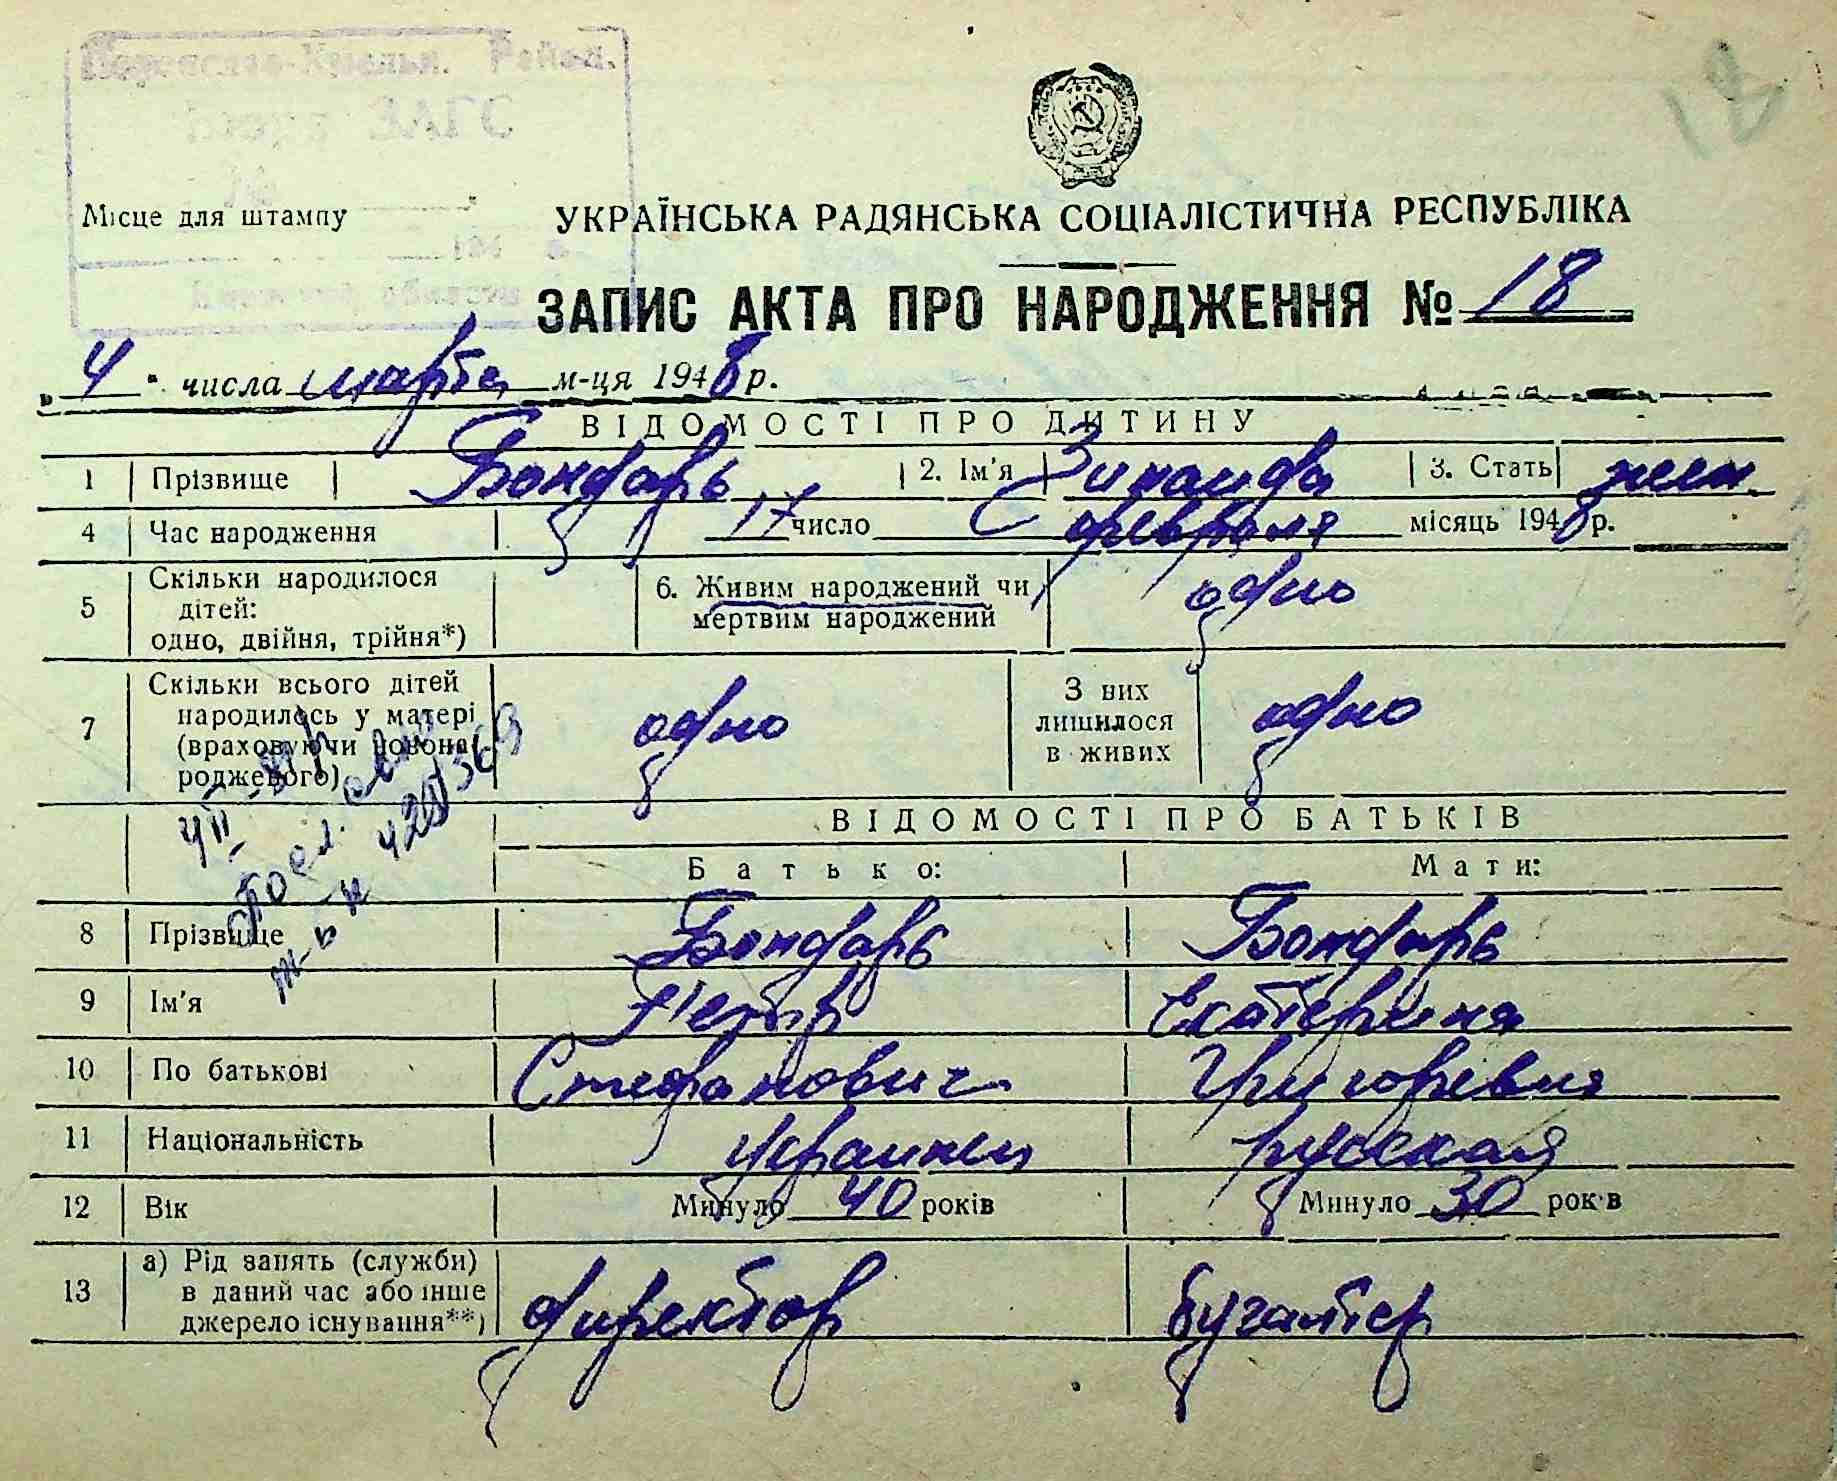 Район.
ЗАГС
№
Місце для штампу
194 г.
области
УКРАЇНСЬКА РАДЯНСЬКА СОЦІАЛІСТИЧНА РЕСПУБЛІКА
ЗАПИС АКТА ПРО НАРОДЖЕННЯ № 18
„4" числа марта м-ця 1948 р.
ВІДОМОСТІ ПРО ДИТИНУ
1 Прізвище Бондарь 2. Ім'я Зинаида 3. Стать жен.
4 Час народження 17 число февраля місяць 1948 р.
5 Скільки народилося дітей: одно, двійня, трійня*) 6. Живим народжений чи мертвим народжений одно
7 Скільки всього дітей народилось у матері (враховуючи новонародженого) одно З них лишилося в живих одно
ВІДОМОСТІ ПРО БАТЬКІВ
Батько: Мати:
8 Прізвище Бондарь Бондарь
9 Ім'я Петр Екатерина
10 По батькові Стефанович Григорьевна
11 Національність украинец русская
12 Вік Минуло 40 років Минуло 30 років
13 а) Рід занять (служби) в даний час або інше джерело існування**) директор бугалтер